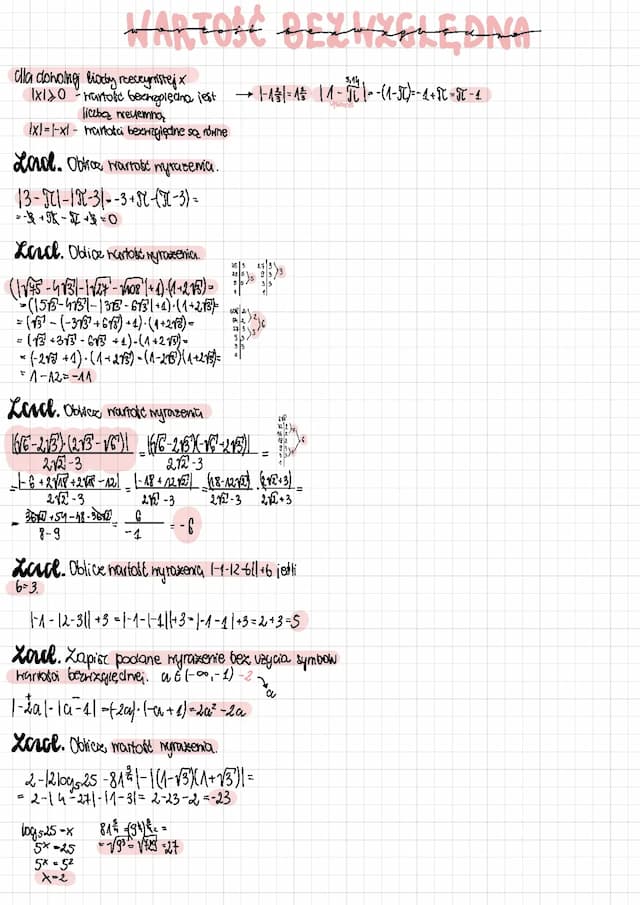 WARTOŚĆ BEZWZGLĘDNA
wartość bezwzględna
dla dowolnej liczby rzeczywistej x
|x| ⩾ 0 - wartość bezwzględna jest
liczbą nieujemną
|x| = |-x| - wartości bezwzględne są równe
3,14
|1 - π| = -(1-π) = -1 + π = π - 1
Zad. Oblicz wartość wyrażenia.
|3 - π| - |π - 3| = -3 + π - (π - 3) =
= -3 + π - π + 3 = 0
Zad. Oblicz wartość wyrażenia.
(|√75 - 4√3| - |√27 - √108| + 1)·(1 + 2√3) =
= (|5√3 - 4√3| - |3√3 - 6√3| + 1)·(1 + 2√3) =
= (√3 - (-3√3 + 6√3) + 1)·(1 + 2√3) =
= (√3 + 3√3 - 6√3 + 1)·(1 + 2√3) =
= (-2√3 + 1)·(1 + 2√3) = (1 - 2√3)(1 + 2√3) =
= 1 - 12 = -11
Zad. Oblicz wartość wyrażenia
|(√6 - 2√3)·(2√3 - √6)| / 2√2 - 3 = |(√6 - 2√3)(-√6 + 2√3)| / 2√2 - 3 =
= |-6 + 2√18 + 2√18 - 12| / 2√2 - 3 = |-18 + 12√2| / 2√2 - 3 = (18 - 12√2) / 2√2 - 3 · (2√2 + 3) / 2√2 + 3 =
= 36√2 + 54 - 48 - 36√2 / 8 - 9 = 6 / -1 = -6
Zad. Oblicz wartość wyrażenia |-1 - |2 - b|| + b jeśli
b = 3.
|-1 - |2 - 3|| + 3 = |-1 - |-1|| + 3 = |-1 - 1| + 3 = 2 + 3 = 5
Zad. Zapisz podane wyrażenie bez użycia symbolu
wartości bezwzględnej. a ∈ (-∞, -1) -2
a
|-2a|·|a - 1| = (-2a)·(-a + 1) = 2a² - 2a
Zad. Oblicz wartość wyrażenia.
2 - |2log₅25 - 81^(3/4)| - |(1 - √3)(1 + √3)| =
= 2 - |4 - 27| - |1 - 3| = 2 - 23 - 2 = -23
log₅25 = x
5ˣ = 25
5ˣ = 5²
x = 2
= √9³ = √729 = 27